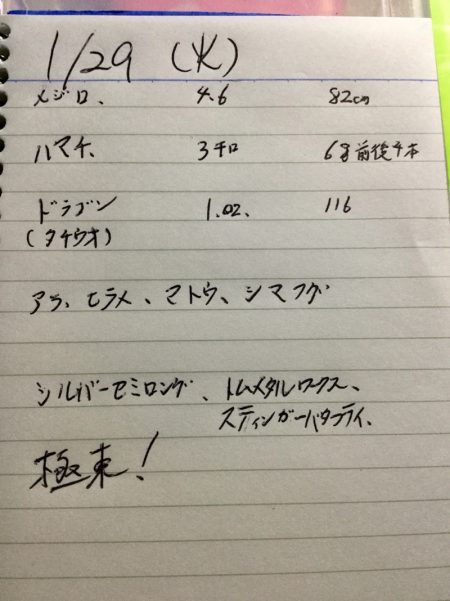 1/29 (火)
メジロ、 4.6 82cm
ハマチ、 3キロ 前後4本
ドラゴン 1.02. 116
(タチウオ)
アラ、ヒラメ、マトウ、シマフグ
シルバーセミロング、トムメタルワークス、
スティンガーバタフライ、
極東!